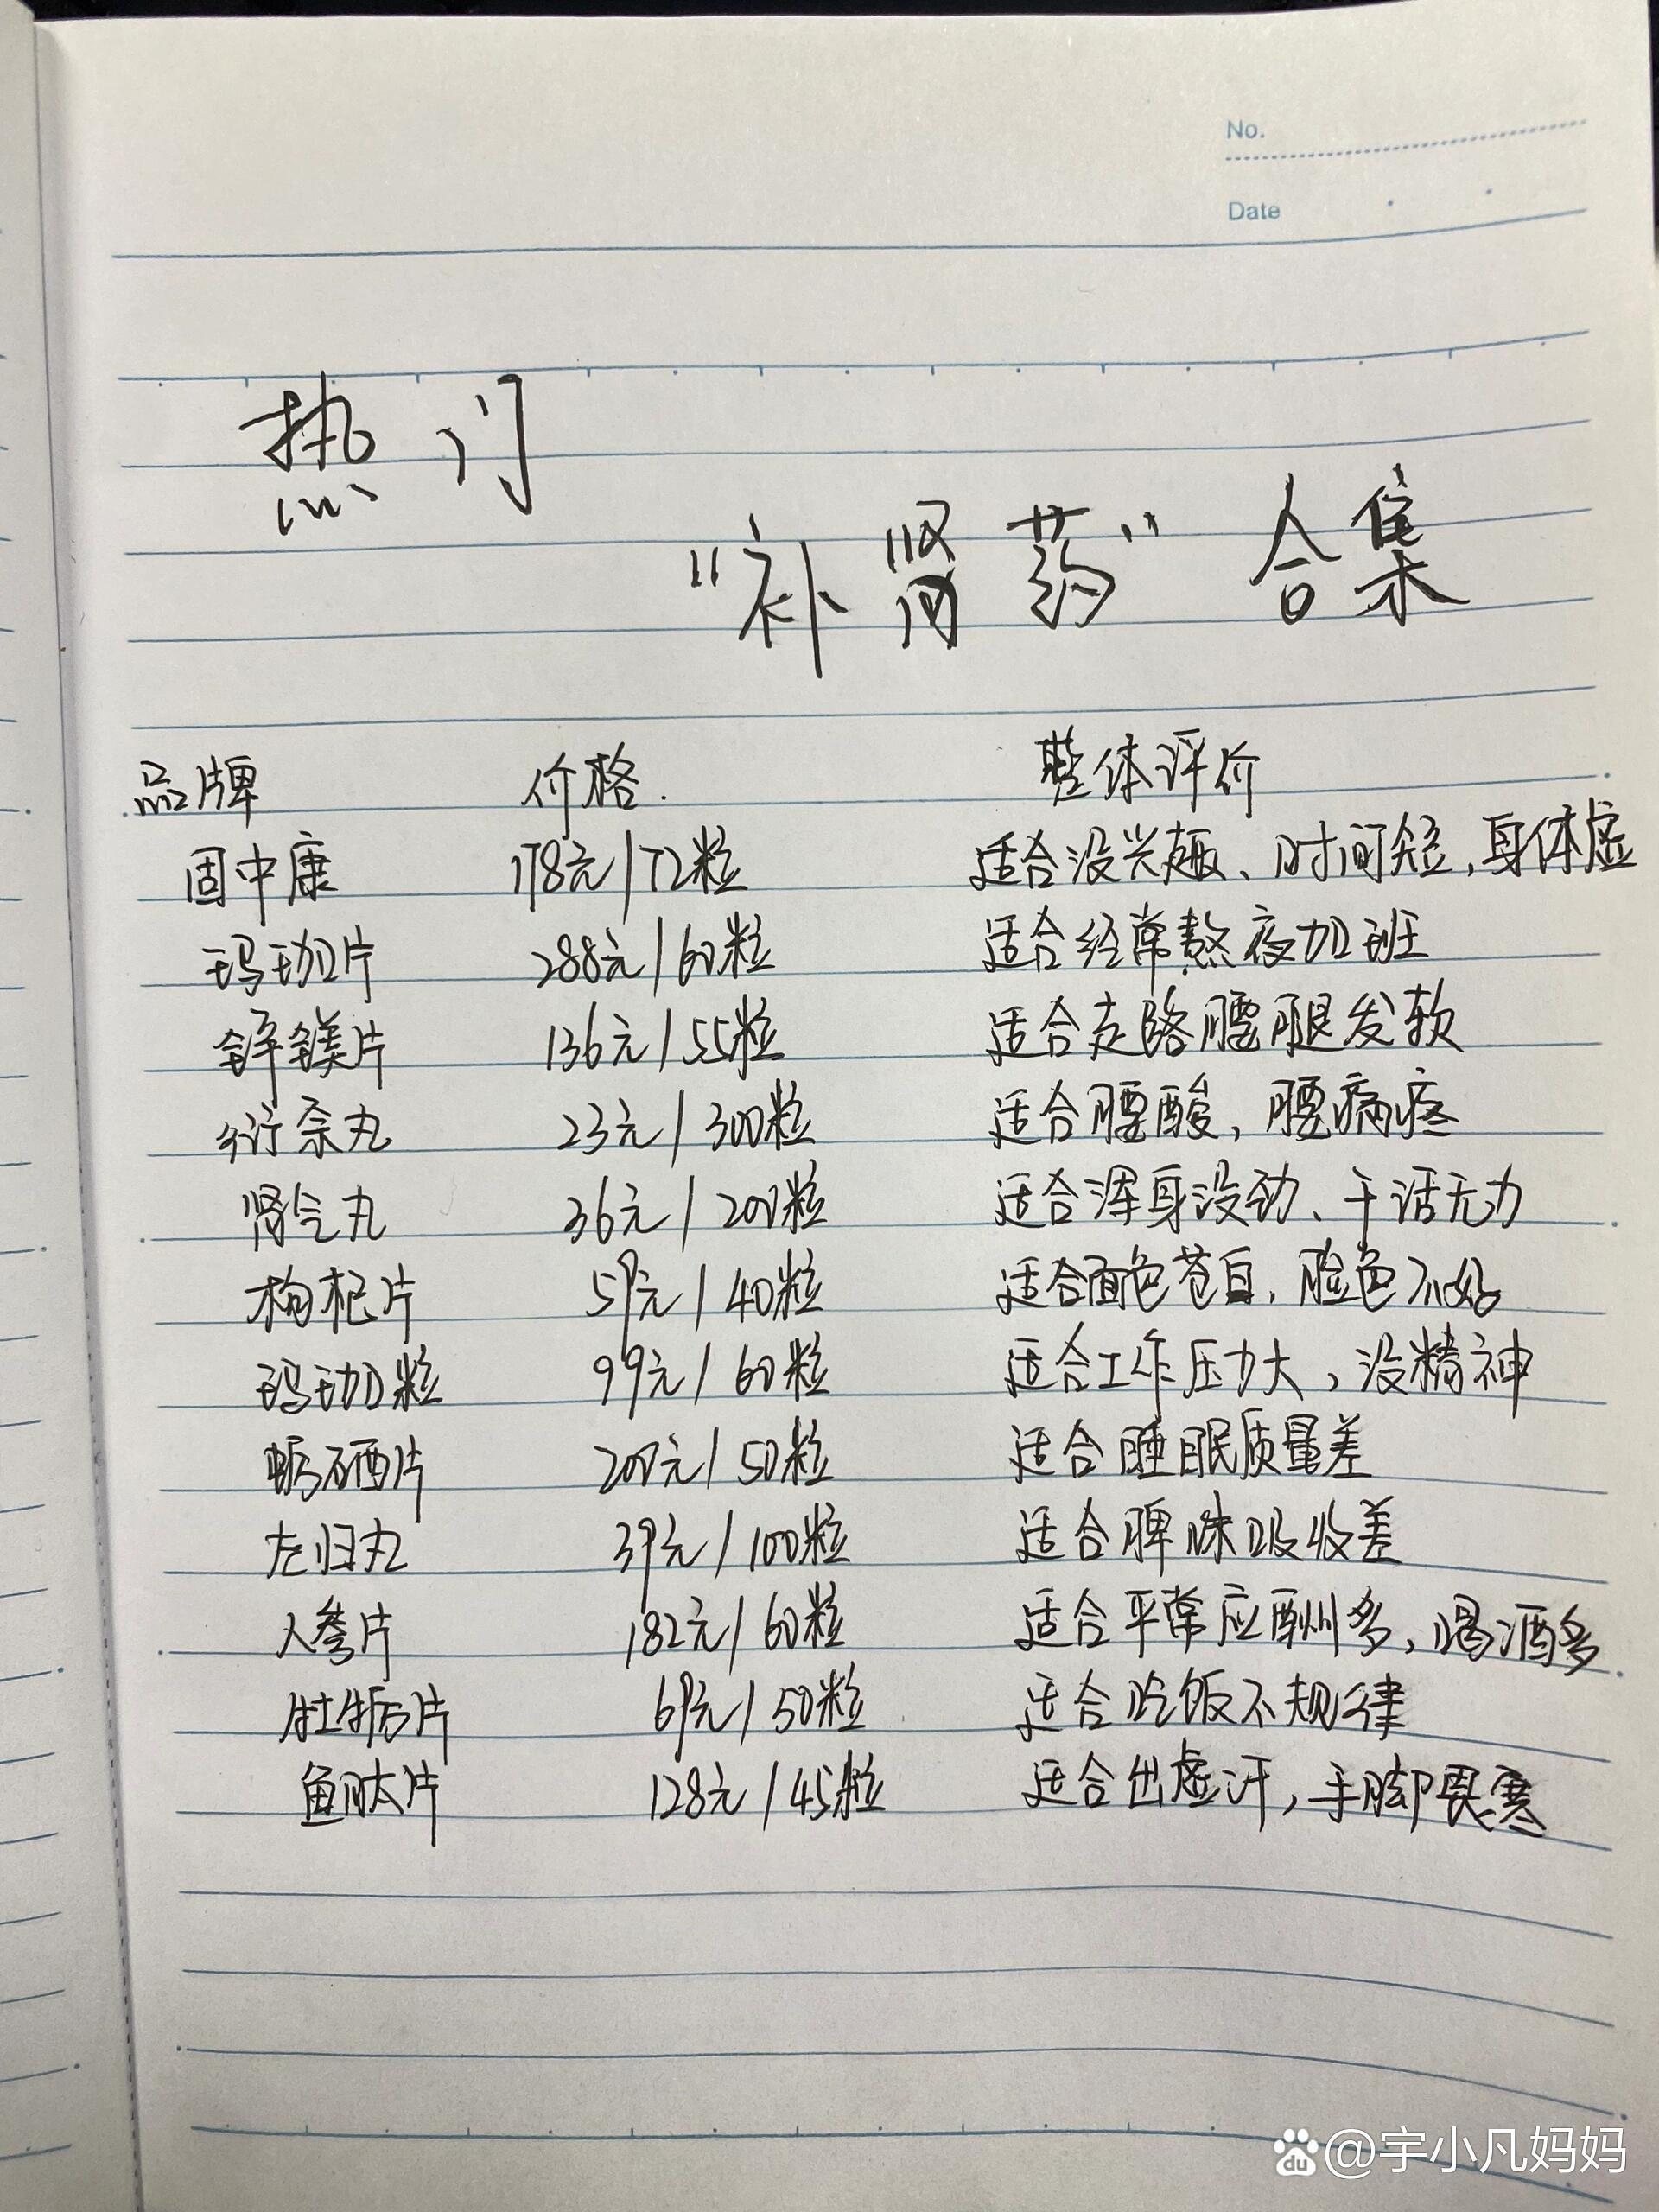 No.
Date
热门
"补肾药"合集
品牌 价格. 整体评价
固中康 178元/72粒 适合没兴趣、时间短,身体虚
玛珈片 288元/60粒 适合经常熬夜加班
锌镁片 136元/55粒 适合走路腰腿发软
衍宗丸 23元/300粒 适合腰酸,腰疼
肾气丸 36元/200粒 适合浑身没劲、干活无力
枸杞片 59元/40粒 适合面色苍白,脸色不好
玛珈粒 99元/60粒 适合工作压力大,没精神
蛎硒片 200元/50粒 适合睡眠质量差
左归丸 39元/100粒 适合脾味吸收差
人参片 182元/60粒 适合平常应酬多,喝酒多
牡蛎片 69元/50粒 适合吃饭不规律
鱼肽片 128元/45粒 适合出虚汗,手脚畏寒
du @宇小凡妈妈